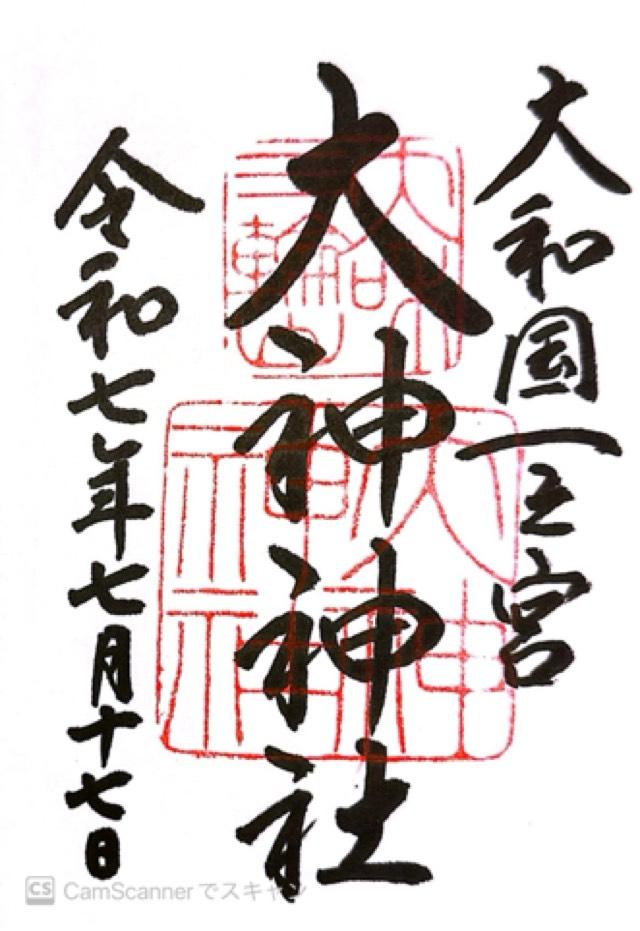 大和国一之宮
大神神社
令和七年七月十七日
CS CamScannerでスキャン